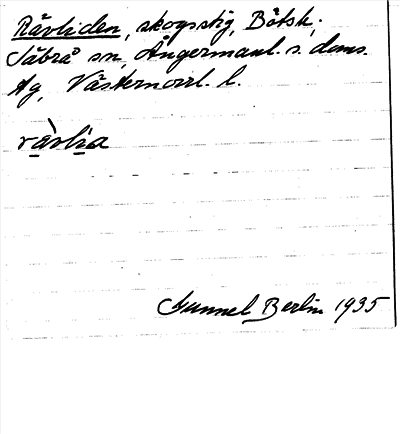 Rävliden, skogsstig, Bölsk,
Säbrå sn, Ångermanl. s. doms.
Ag, Västernorrl. l.
ràvlia
Gunnel Berlin 1935